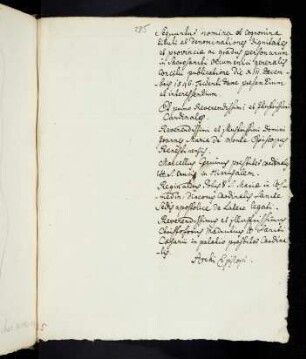 285
Sequuntur nomina et cognomina
tituli et denominationes dignitates
et provincia ac gradus personarum
in Sacrosancti Oecumenici generalis
Concilii publicatione die XIII. Decem-
bris 1545. Tridenti tunc presentium
et interessentium.
Et primo Reverendissimi et Illustrissimi
Cardinales.
Reverendissimi et Illustrissimi Domini
Joannes Maria de Monte Episcopus
Prenestinensis.
Marcellus Cervinus presbiter cardinalis
tit. S. Crucis in Hierusalem.
Reginaldus Polus S. Mariae in Cos-
medin. diaconus Cardinalis Sanctae
Sedis apostolicae de Latere legati.
Reverendissimus et Illustrissimus
Christophorus Madrutius tit. Sancti
Caesarii in palatio presbiter Cardina-
lis.
Archi Episcopi.